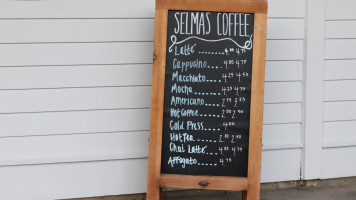 SELMAS COFFEE
Latté 4.00 4.75
Cappucino 4.00 4.75
Macchiato 4.25 4.50
Mocha 4.25 4.75
Americano 2.75 2.95
Hot Coffee 2.00 2.50
Cold Press 4.00
Hot Tea 2.00 2.50
Chai Latté 4.00 4.50
Affogato 4.75